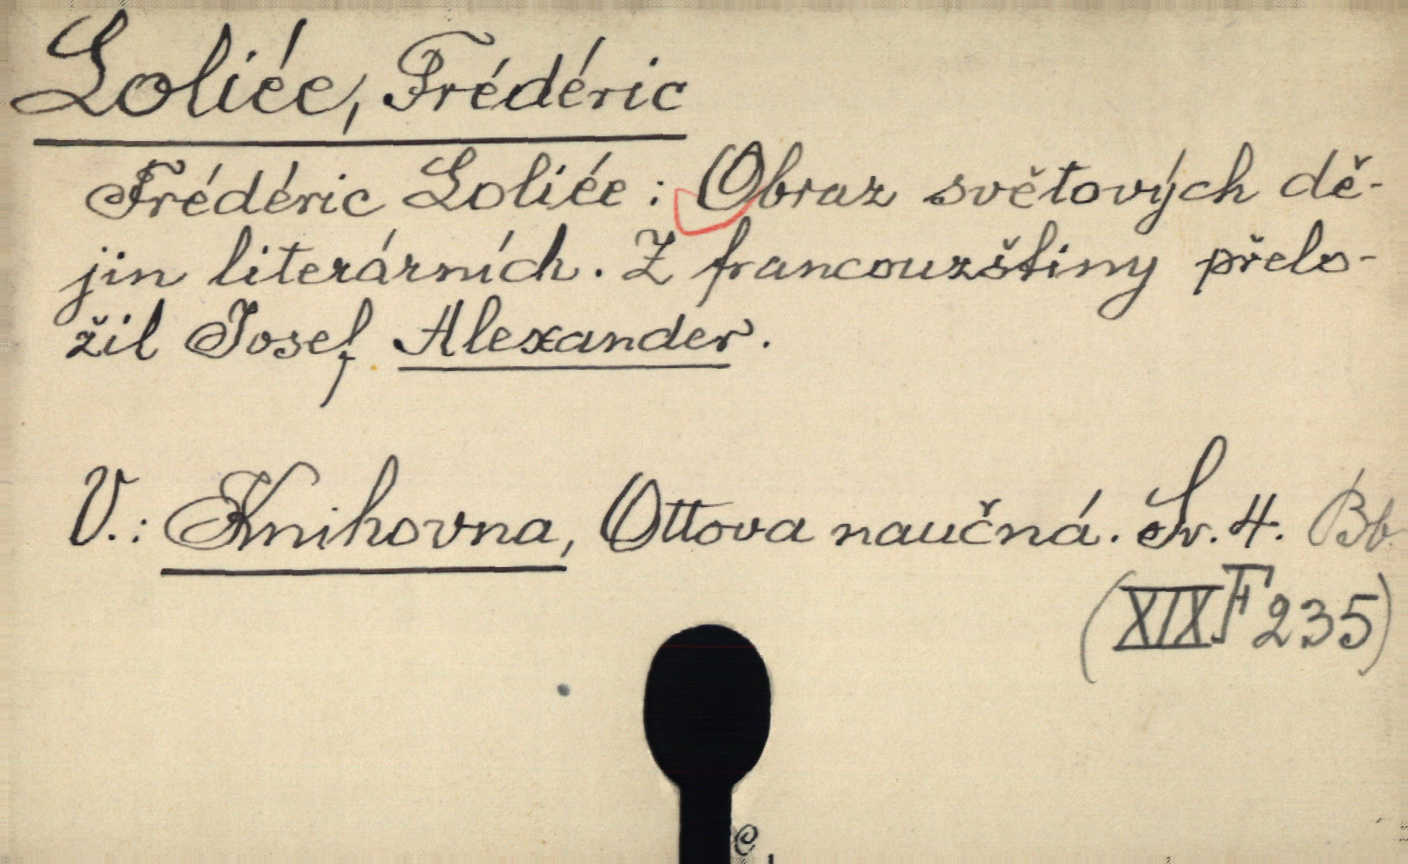 Loliée, Frédéric
Frédéric Loliée: Obraz světových dě-
jin literárních. Z francouzštiny přelo-
žil Josef Alexander.
V.: Knihovna, Ottova naučná. Sv. 4. Bb
(XIX F 235)